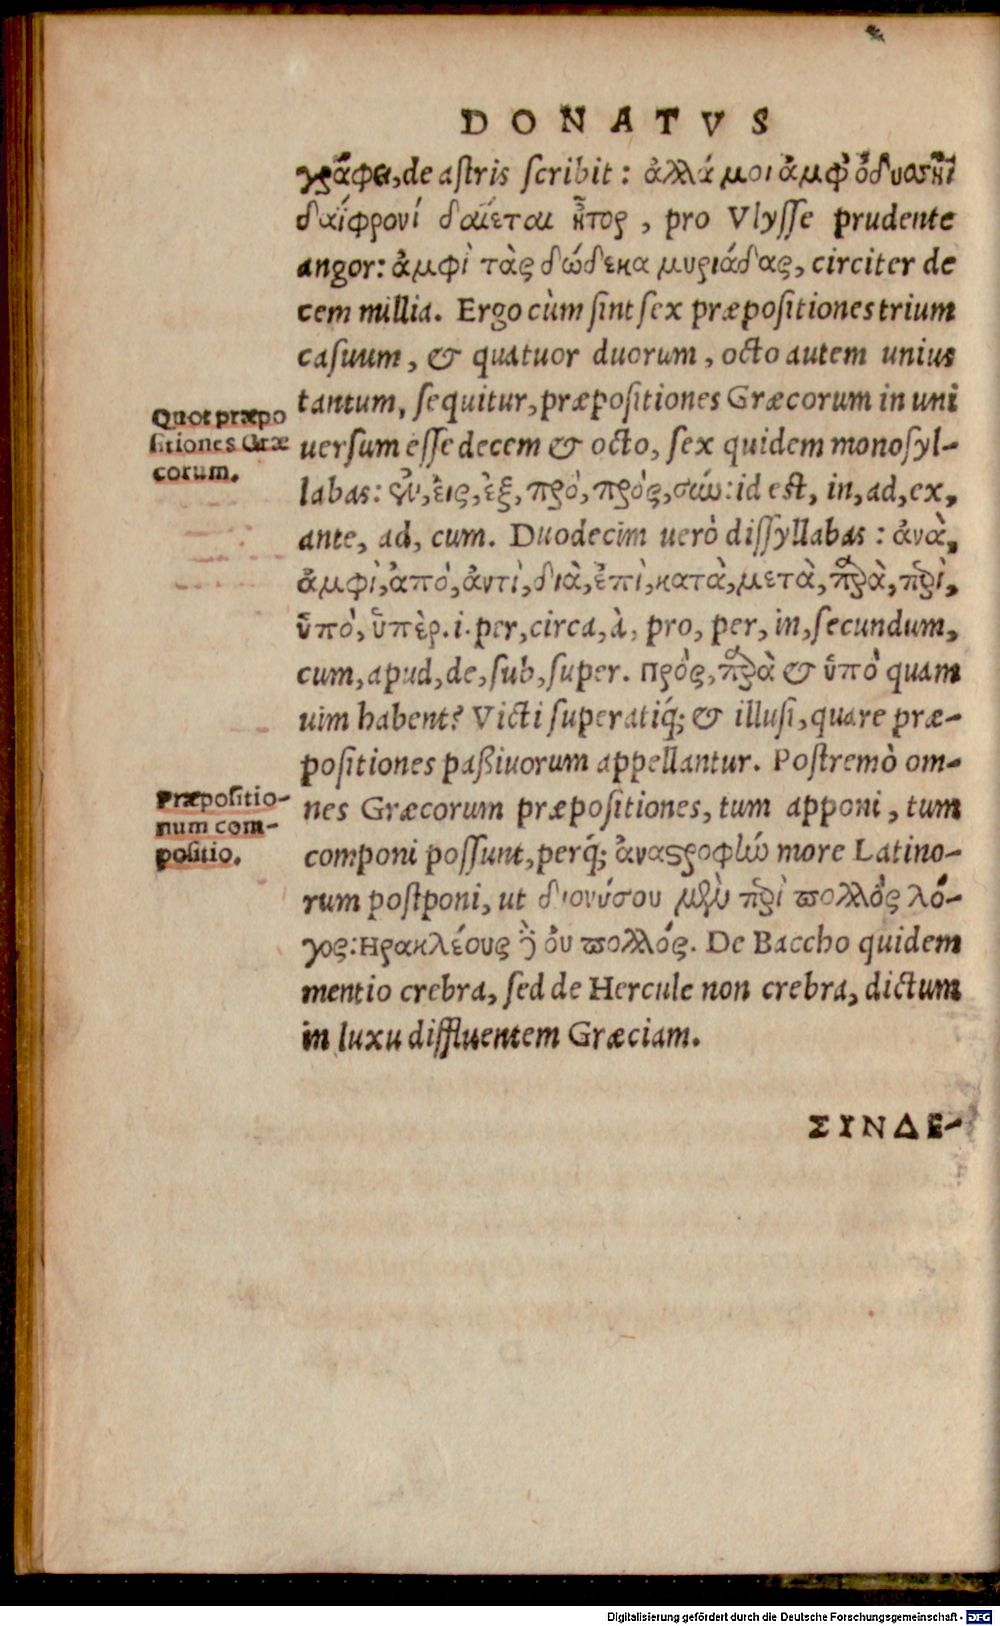 DONATVS
γράφει, de astris scribit: ἀλλά μοι ἀμφ' ὀδυσῆϊ
δαΐφρονί δαίεται ἦτορ, pro Vlysse prudente
angor: ἀμφὶ τὰς δώδεκα μυριάδας, circiter de
cem millia. Ergo cùm sint sex præpositiones trium
casuum, & quatuor duorum, octo autem unius
tantum, sequitur, præpositiones Græcorum in uni
Quot præpo
sitiones Græ
corum.
uersum esse decem & octo, sex quidem monosyl-
labas: ἐν, εἰς, ἐξ, πρό, πρός, σύν: id est, in, ad, ex,
ante, ad, cum. Duodecim uerò dissyllabas: ἀνὰ,
ἀμφὶ, ἀπό, ἀντὶ, διὰ, ἐπὶ, κατὰ, μετὰ, παρὰ, περὶ,
ὑπό, ὑπὲρ. i. per, circa, à, pro, per, in, secundum,
cum, apud, de, sub, super. πρός, παρὰ & ὑπὸ quam
uim habent? Victi superatiq́; & illusi, quare præ-
positiones paßiuorum appellantur. Postremò om-
Præpositio-
num com-
positio.
nes Græcorum præpositiones, tum apponi, tum
componi possunt, perq́; ἀναστροφὴν more Latino-
rum postponi, ut διονύσου μὲν περὶ πολλὸς λό-
γος: Ηρακλέους δ' οὐ πολλός. De Baccho quidem
mentio crebra, sed de Hercule non crebra, dictum
in luxu diffluentem Græciam.
ΣΙΝΔΕ-
Digitalisierung gefördert durch die Deutsche Forschungsgemeinschaft - DFG